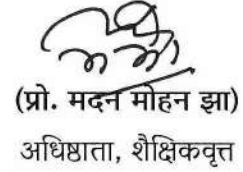 (प्रो. मदन मोहन झा)
अधिष्ठाता, शैक्षिकवृत्त